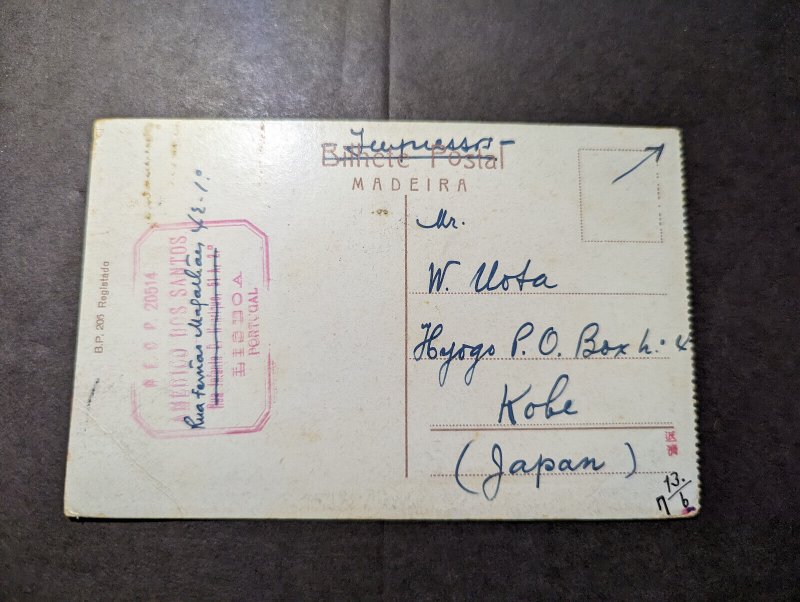 Impressos
Bilhete Postal
MADEIRA
Mr.
W. Uota
Hyogo P. O. Box n. 4
Kobe
(Japan)
13.
7/6
B.P. 205 Registado
M E C P. 20514
AMERICO DOS SANTOS
Rua Fernão Magalhães 42-1º
LISBOA
PORTUGAL